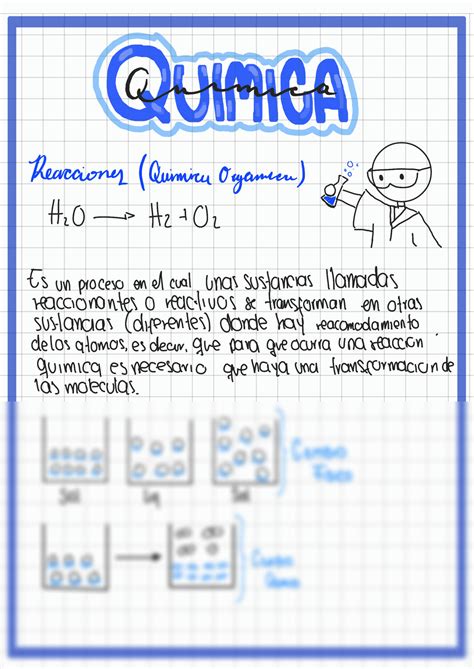 QUIMICA
Quimica
Reacciones (Quimica Organica)
H₂O → H₂ + O₂
Es un proceso en el cual unas sustancias llamadas
reaccionantes o reactivos se transforman en otras
sustancias (diferentes) donde hay reacomodamiento
de los atomos, es decir, que para que ocurra una reaccion
quimica es necesario que haya una transformacion de
las moleculas.
Sol Liq Sol
Cambio
Fisico
Cambio